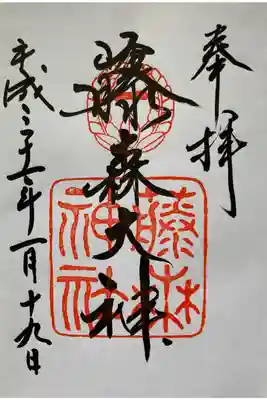 奉拝
藤森大神
平成二十七年一月十九日
藤森
神社